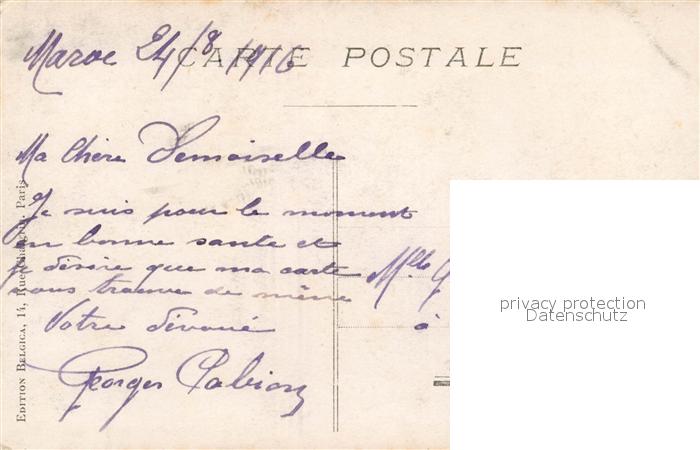 Maroc 24/8 1916
CARTE POSTALE
Ma Chère Demoiselle
Je suis pour le moment
en bonne sante et
je désire que ma carte
vous trouve de même
Votre dévoué
Georges
Mlle G
à
EDITION BELGICA, 14, Rue Paris
privacy protection
Datenschutz